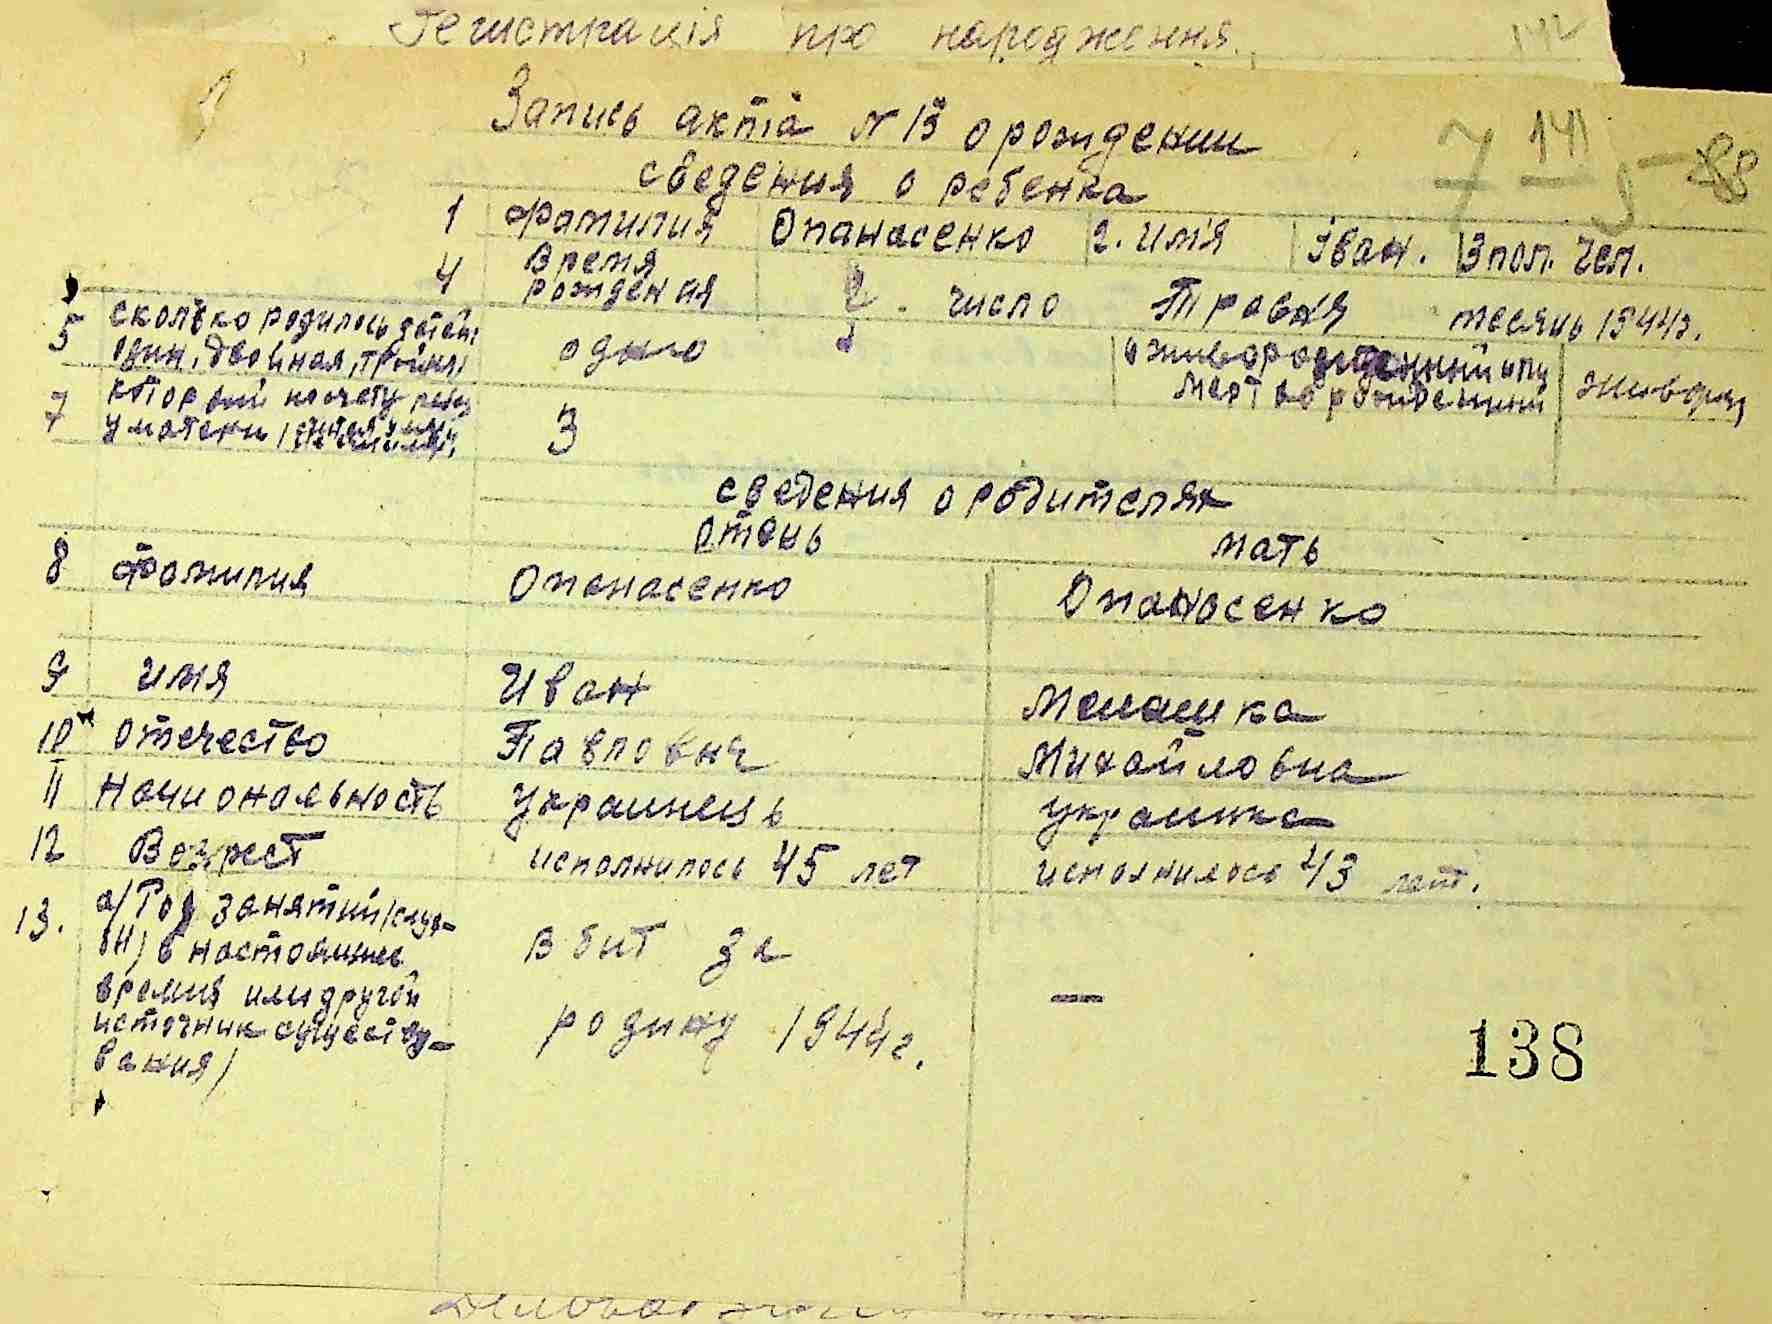 Регистрація про народження.
142
Запись актiа N 13 о рождении
7 141 5 88
сведения о ребенка
1 Фамилия Опанасенко 2. имя Iван. 3 пол. чел.
4 Время рождения 2 число Травня месяць 1944г.
5 сколько родилось детей:
один, двойная, тройня/ одно
6 живорожденный или
мертворожденный живорж
7 который по счету ребен
у матери 3
сведения о родителях
отець мать
8 Фамилия Опанасенко Опанасенко
9 имя Иван Мелашка
10 отечество Павлович Михайловна
11 Национальность украинець украинка
12 Возраст исполнилось 45 лет исполнилось 43 лет.
13. а/Род занятий/служ-
би/ в настоящее
время или другой
источник существо-
вания/
вбит за
родину 1944г.
—
138